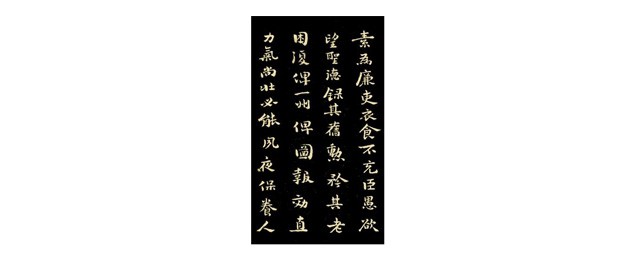 素為廉吏衣食不充臣愚欲
望聖德録其舊勳矜其老
困復俾一州俾圖報効直
力氣尚壯必能夙夜保養人